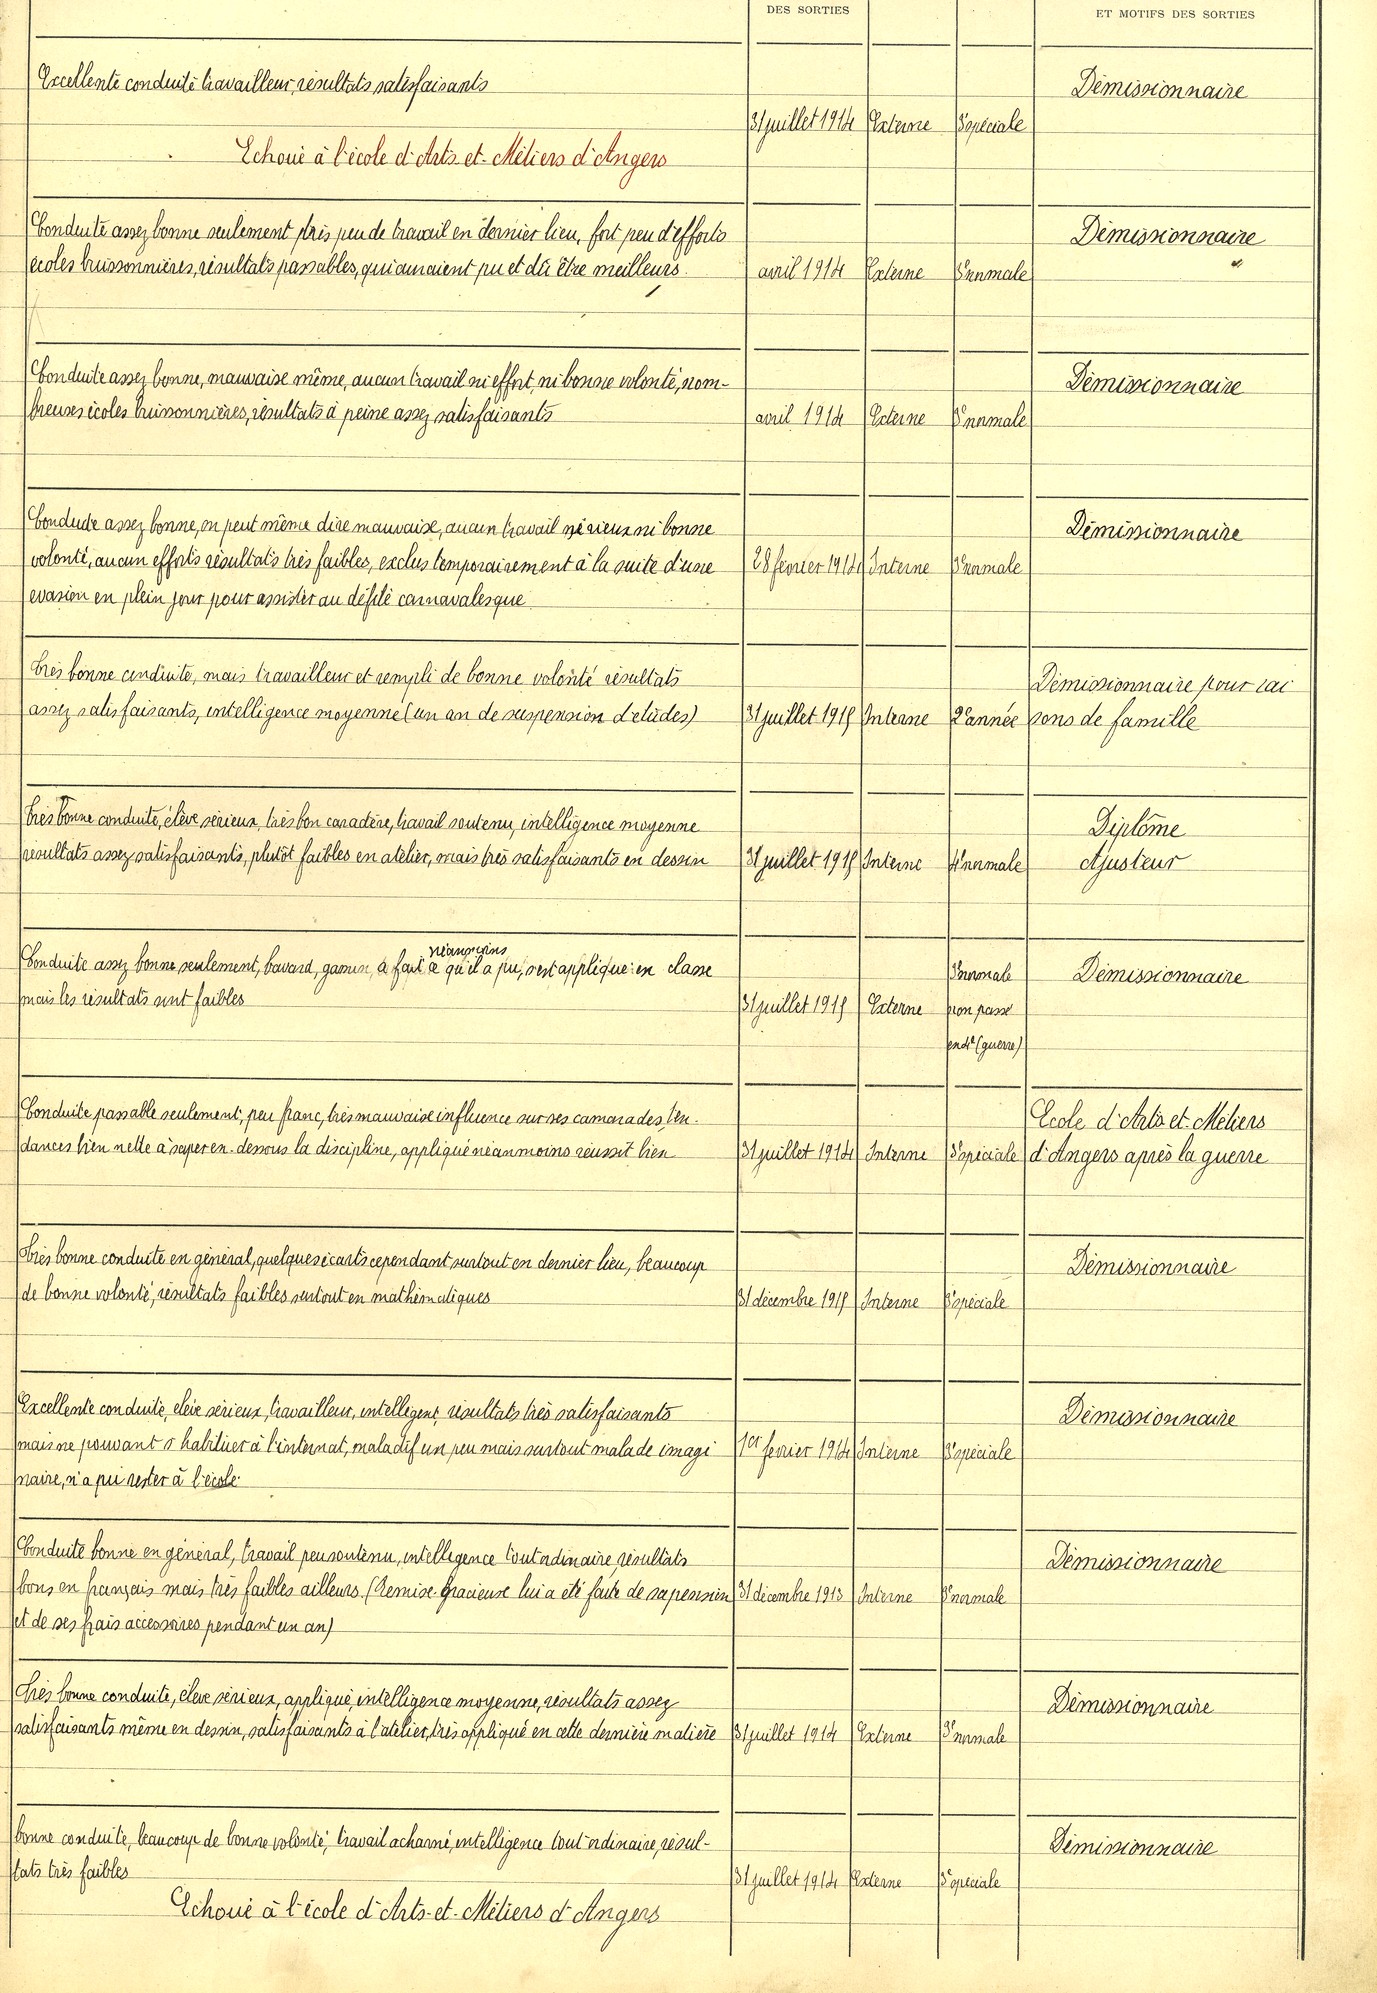 DES SORTIES
ET MOTIFS DES SORTIES
Excellente conduite travailleur, résultats satisfaisants
Démissionnaire
31 juillet 1914 Externe 3e spéciale
Echoué à l'école d'Arts-et-Métiers d'Angers
Conduite assez bonne seulement très peu de travail en dernier lieu, fort peu d'efforts
Démissionnaire
écoles buissonnières, résultats passables, qui auraient pu et dû être meilleurs.
avril 1914 Externe 3e normale
Conduite assez bonne, mauvaise même, aucun travail ni effort, ni bonne volonté, nom-
Démissionnaire
breuses écoles buissonnières, résultats à peine assez satisfaisants
avril 1914 Externe 3e normale
Conduite assez bonne, on peut même dire mauvaise, aucun travail sérieux ni bonne
Démissionnaire
volonté, aucun efforts résultats très faibles, exclus temporairement à la suite d'une
28 février 1914 Interne 3e normale
evasion en plein jour pour assister au défilé carnavalesque
Très bonne conduite, mais travailleur et rempli de bonne volonté résultats
Démissionnaire pour rai
assez satisfaisants, intelligence moyenne (un an de suspension d'etudes)
31 juillet 1915 Interne 2e année sons de famille
Très bonne conduite, élève sérieux, très bon caractère, travail soutenu, intelligence moyenne
Diplôme
résultats assez satisfaisants, plutôt faibles en atelier, mais très satisfaisants en dessin
31 juillet 1915 Interne 4e normale Ajusteur
néanmoins
Conduite assez bonne seulement, bavard, gamin, a fait ce qu'il a pu, s'est appliqué en classe
3e normale Démissionnaire
mais les résultats sont faibles
31 juillet 1915 Externe non passé
en 4e (guerre)
Conduite passable seulement, peu franc, très mauvaise influence sur ses camarades, ten-
Ecole d'Arts-et-Métiers
dances bien nette à saper en-dessous la discipline, appliqué néanmoins réussit bien
31 juillet 1914 Interne 3e spéciale d'Angers après la guerre
Très bonne conduite en général, quelques écarts cependant surtout en dernier lieu, beaucoup
Démissionnaire
de bonne volonté, résultats faibles surtout en mathématiques
31 décembre 1915 Interne 3e spéciale
Excellente conduite, elève sérieux, travailleur, intelligent, résultats très satisfaisants
Démissionnaire
mais ne pouvant s'habituer à l'internat, maladif un peu mais surtout malade imagi
1er février 1914 Interne 3e spéciale
naire, n'a pu rester à l'école
Conduite bonne en général, travail peu soutenu, intelligence tout ordinaire, résultats
Démissionnaire
bons en français mais très faibles ailleurs. (Remise gracieuse lui a été faite de sa pension
31 décembre 1913 Interne 3e normale
et de ses frais accessoires pendant un an)
Très bonne conduite, élève sérieux, appliqué, intelligence moyenne, résultats assez
Démissionnaire
satisfaisants même en dessin, satisfaisants à l'atelier, très appliqué en cette dernière matière
31 juillet 1914 Externe 3e normale
bonne conduite, beaucoup de bonne volonté, travail acharné, intelligence tout ordinaire, résul-
Démissionnaire
tats très faibles
31 juillet 1914 Externe 3e spéciale
Echoué à l'école d'Arts-et-Métiers d'Angers